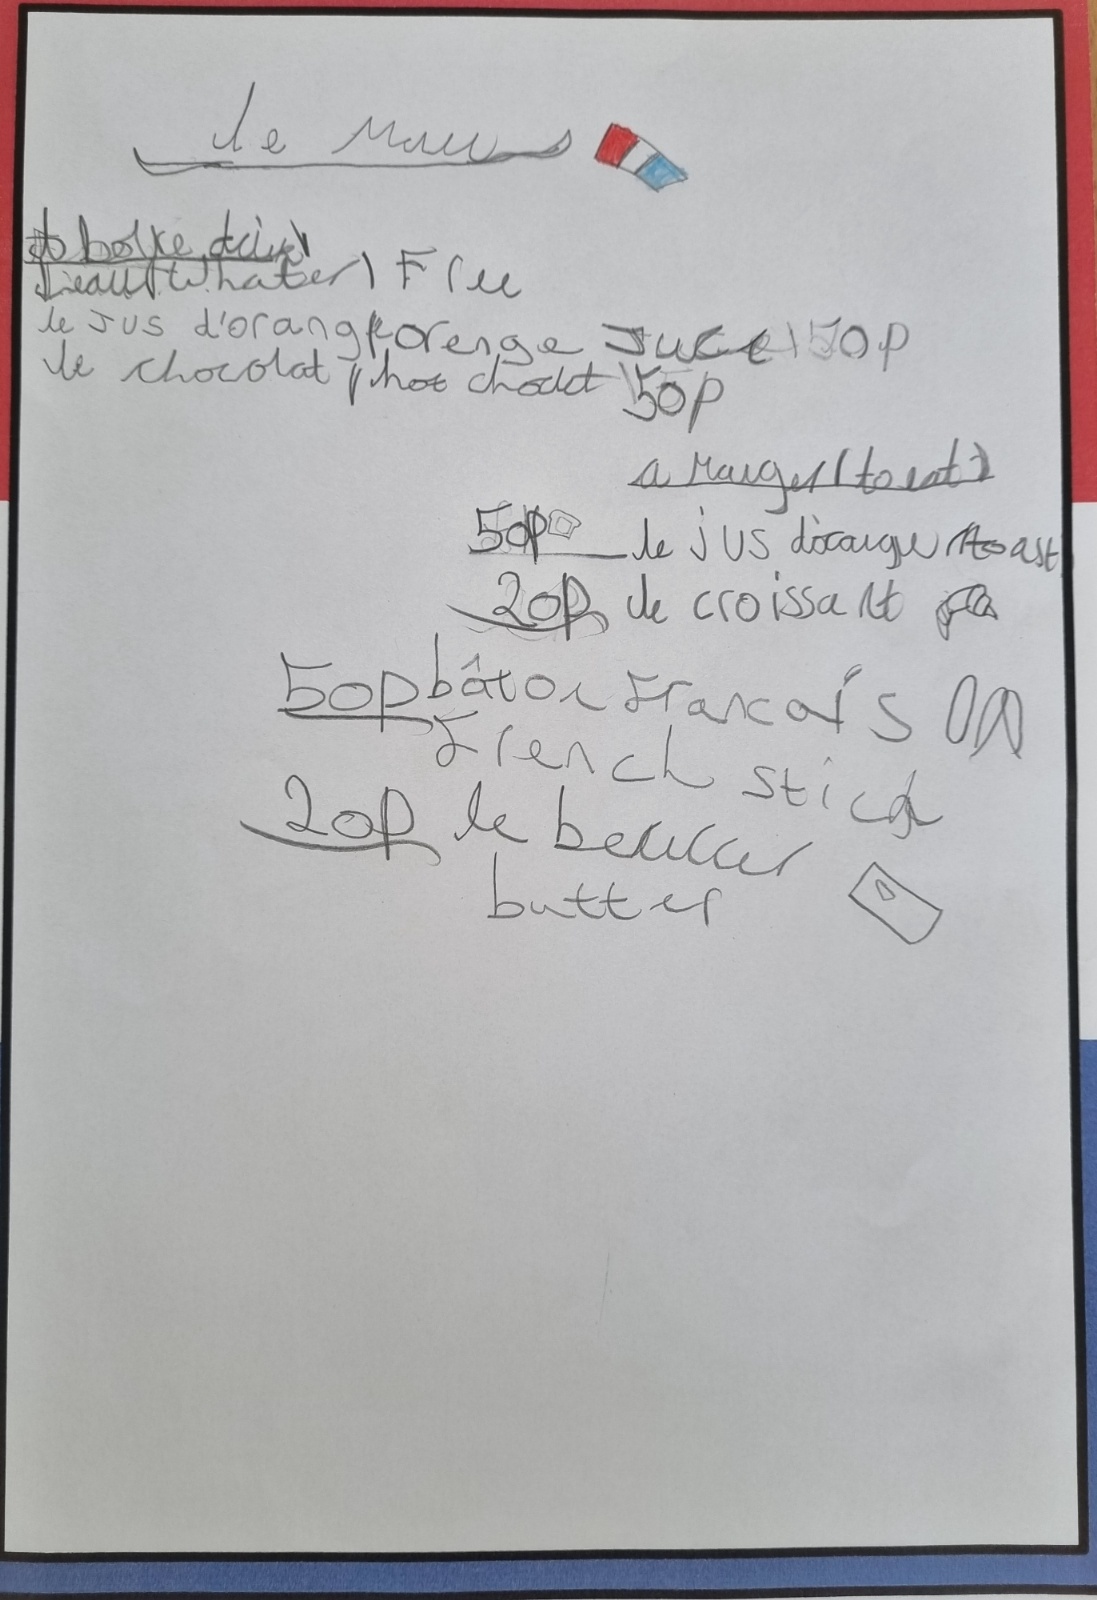 le Menu
à boire drink
L'eau (Whater) Free
le jus d'orange (orenge Juce) 50p
le chocolat (hot choclat) 50p
a manger (to eat)
50p le jus d'orange toast
20p le croissant
50p bâton francais
French stick
20p le beurrer
butter